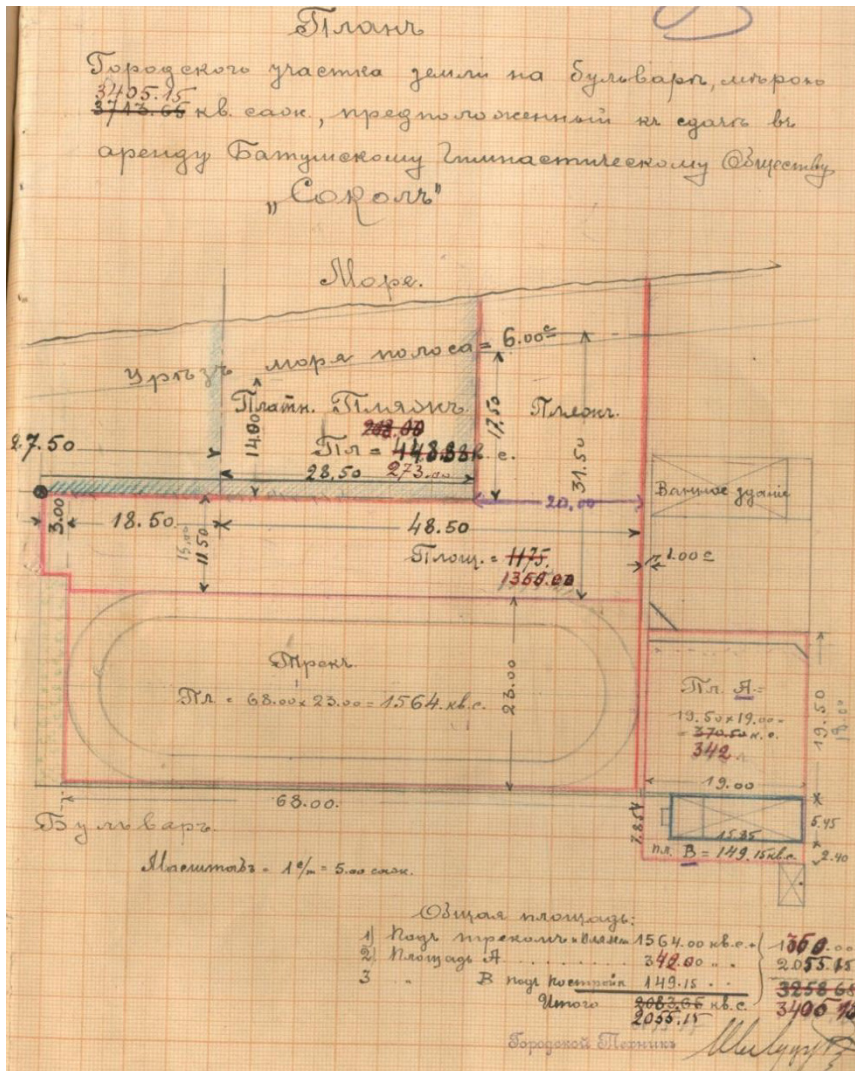 Планъ
Городского участка земли на бульварѣ, мѣрою
3405.15
3713.65 кв. саж., предположенный къ сдачѣ въ
аренду Батумскому Гимнастическому Обществу
„Соколъ"
Море.
Урѣзъ моря полоса = 6.00 с
Платн. Пляжъ
Пляжъ.
248.00
Пл = 448.88 кв. с.
273.00
14.00
17.50
31.50
27.50
28.50
20.00
Ванное зданіе
3.00
18.50
48.50
15.00
11.50
Площ. = 1175.
1350.00
1.00 с
Трекъ.
Пл. = 68.00 x 23.00 = 1564. кв. с.
23.00
Пл. А =
19.50 x 19.00 =
= 370.50 к. с.
342
19.50
18.00
19.00
68.00.
Бульваръ.
7.85
15.85
5.45
пл. В = 149.15 кв. с.
2.40
Масштабъ = 1 с/м = 5.00 саж.
Общая площадь:
1) Подъ трекомъ 1564.00 кв. с.
1350.00
2) Площадь А 342.00
2055.15
3 " В подъ постройк 149.15
3258.65
Итого 2083.65 кв. с.
3405.15
2055.15
Городской Техникъ